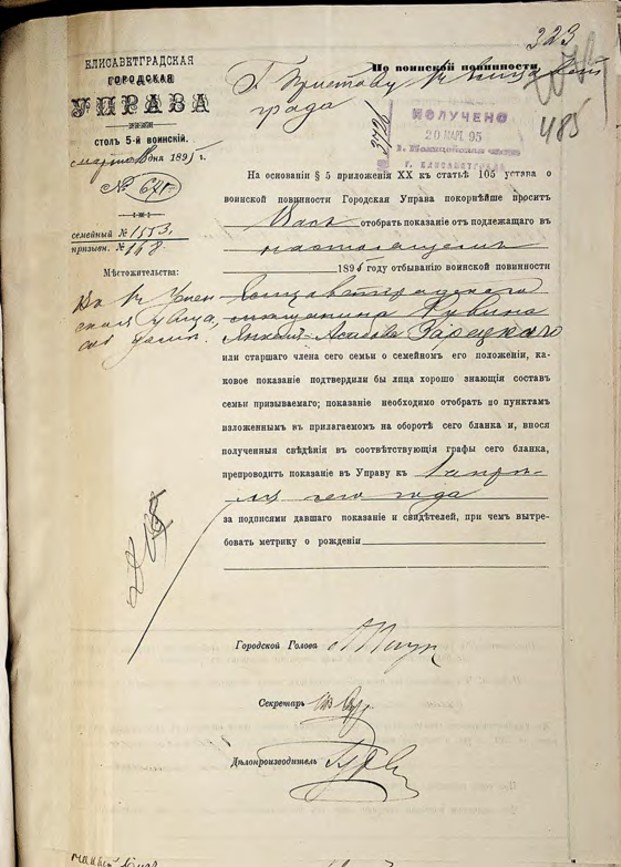 323
485
ЕЛИСАВЕТГРАДСКАЯ
ГОРОДСКАЯ
УПРАВА
СТОЛЪ 5-й ВОИНСКІЙ.
марта 18 дня 1895 г.
№ 670
семейный № 1553,
призывн. № 168
Мѣстожительства:
По воинской повинности.
Г Приставу
града
3726
ПОЛУЧЕНО
20 МАР. 95
Г. ЕЛИСАВЕТГРАДА
На основаніи § 5 приложенія XX къ статьѣ 105 устава о
воинской повинности Городская Управа покорнѣйше проситъ
Васъ отобрать показаніе отъ подлежащаго въ
настоящемъ
1895 году отбыванію воинской повинности
Елисаветградскаго
мѣщанина Рувина
Янкель- Зарецкаго
или старшаго члена сего семьи о семейномъ его положеніи, ка-
ковое показаніе подтвердили бы лица хорошо знающія составъ
семьи призываемаго; показаніе необходимо отобрать по пунктамъ
изложеннымъ въ прилагаемомъ на оборотѣ сего бланка и, внося
полученныя свѣдѣнія въ соотвѣтствующія графы сего бланка,
препроводить показаніе въ Управу къ 1 апрѣ-
ля сего года
за подписями давшаго показаніе и свидѣтелей, при чемъ вытре-
бовать метрику о рожденіи
Городской Голова
Секретарь
Дѣлопроизводитель